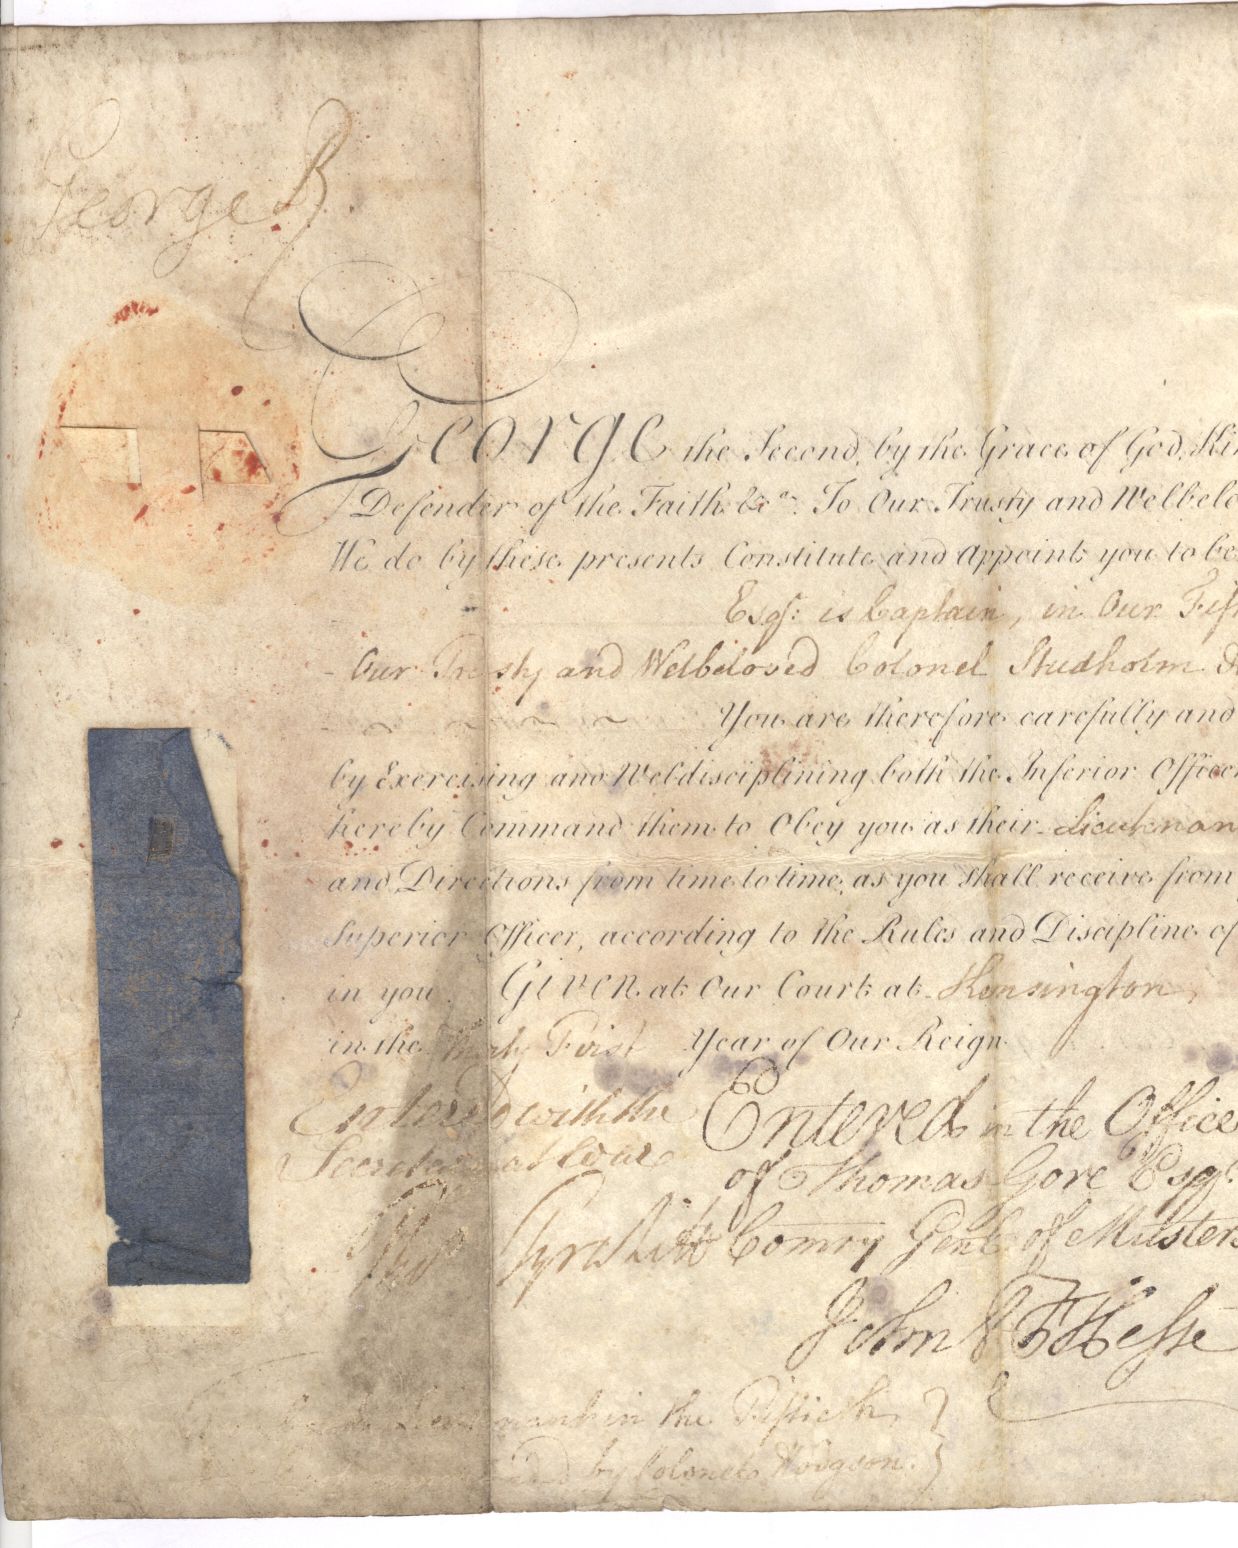 George R
George the Second, by the Grace of God, Ki
Defender of the Faith &c.a To Our Trusty and Welbelo
We do by these presents Constitute and Appoint you to be
Esqr: is Captain, in Our Fif
Our Trusty and Welbeloved Colonel Studholm
You are therefore carefully and
by Exercising and Weldisciplining both the Inferior Officer
hereby Command them to Obey you as their Lieutenan
and Directions from time to time, as you shall receive from
Superior Officer, according to the Rules and Discipline of
in you. Given at Our Court at Kensington,
in the Thirty First Year of Our Reign
Enter'd with the
Secretary at War
Tho Tyrwhitt
Entered in the Office
of Thomas Gore Esqr.
Comry Genl. of Musters
John Hesse
Lieutenant in the Fiftieth
by Colonel Hodgson.